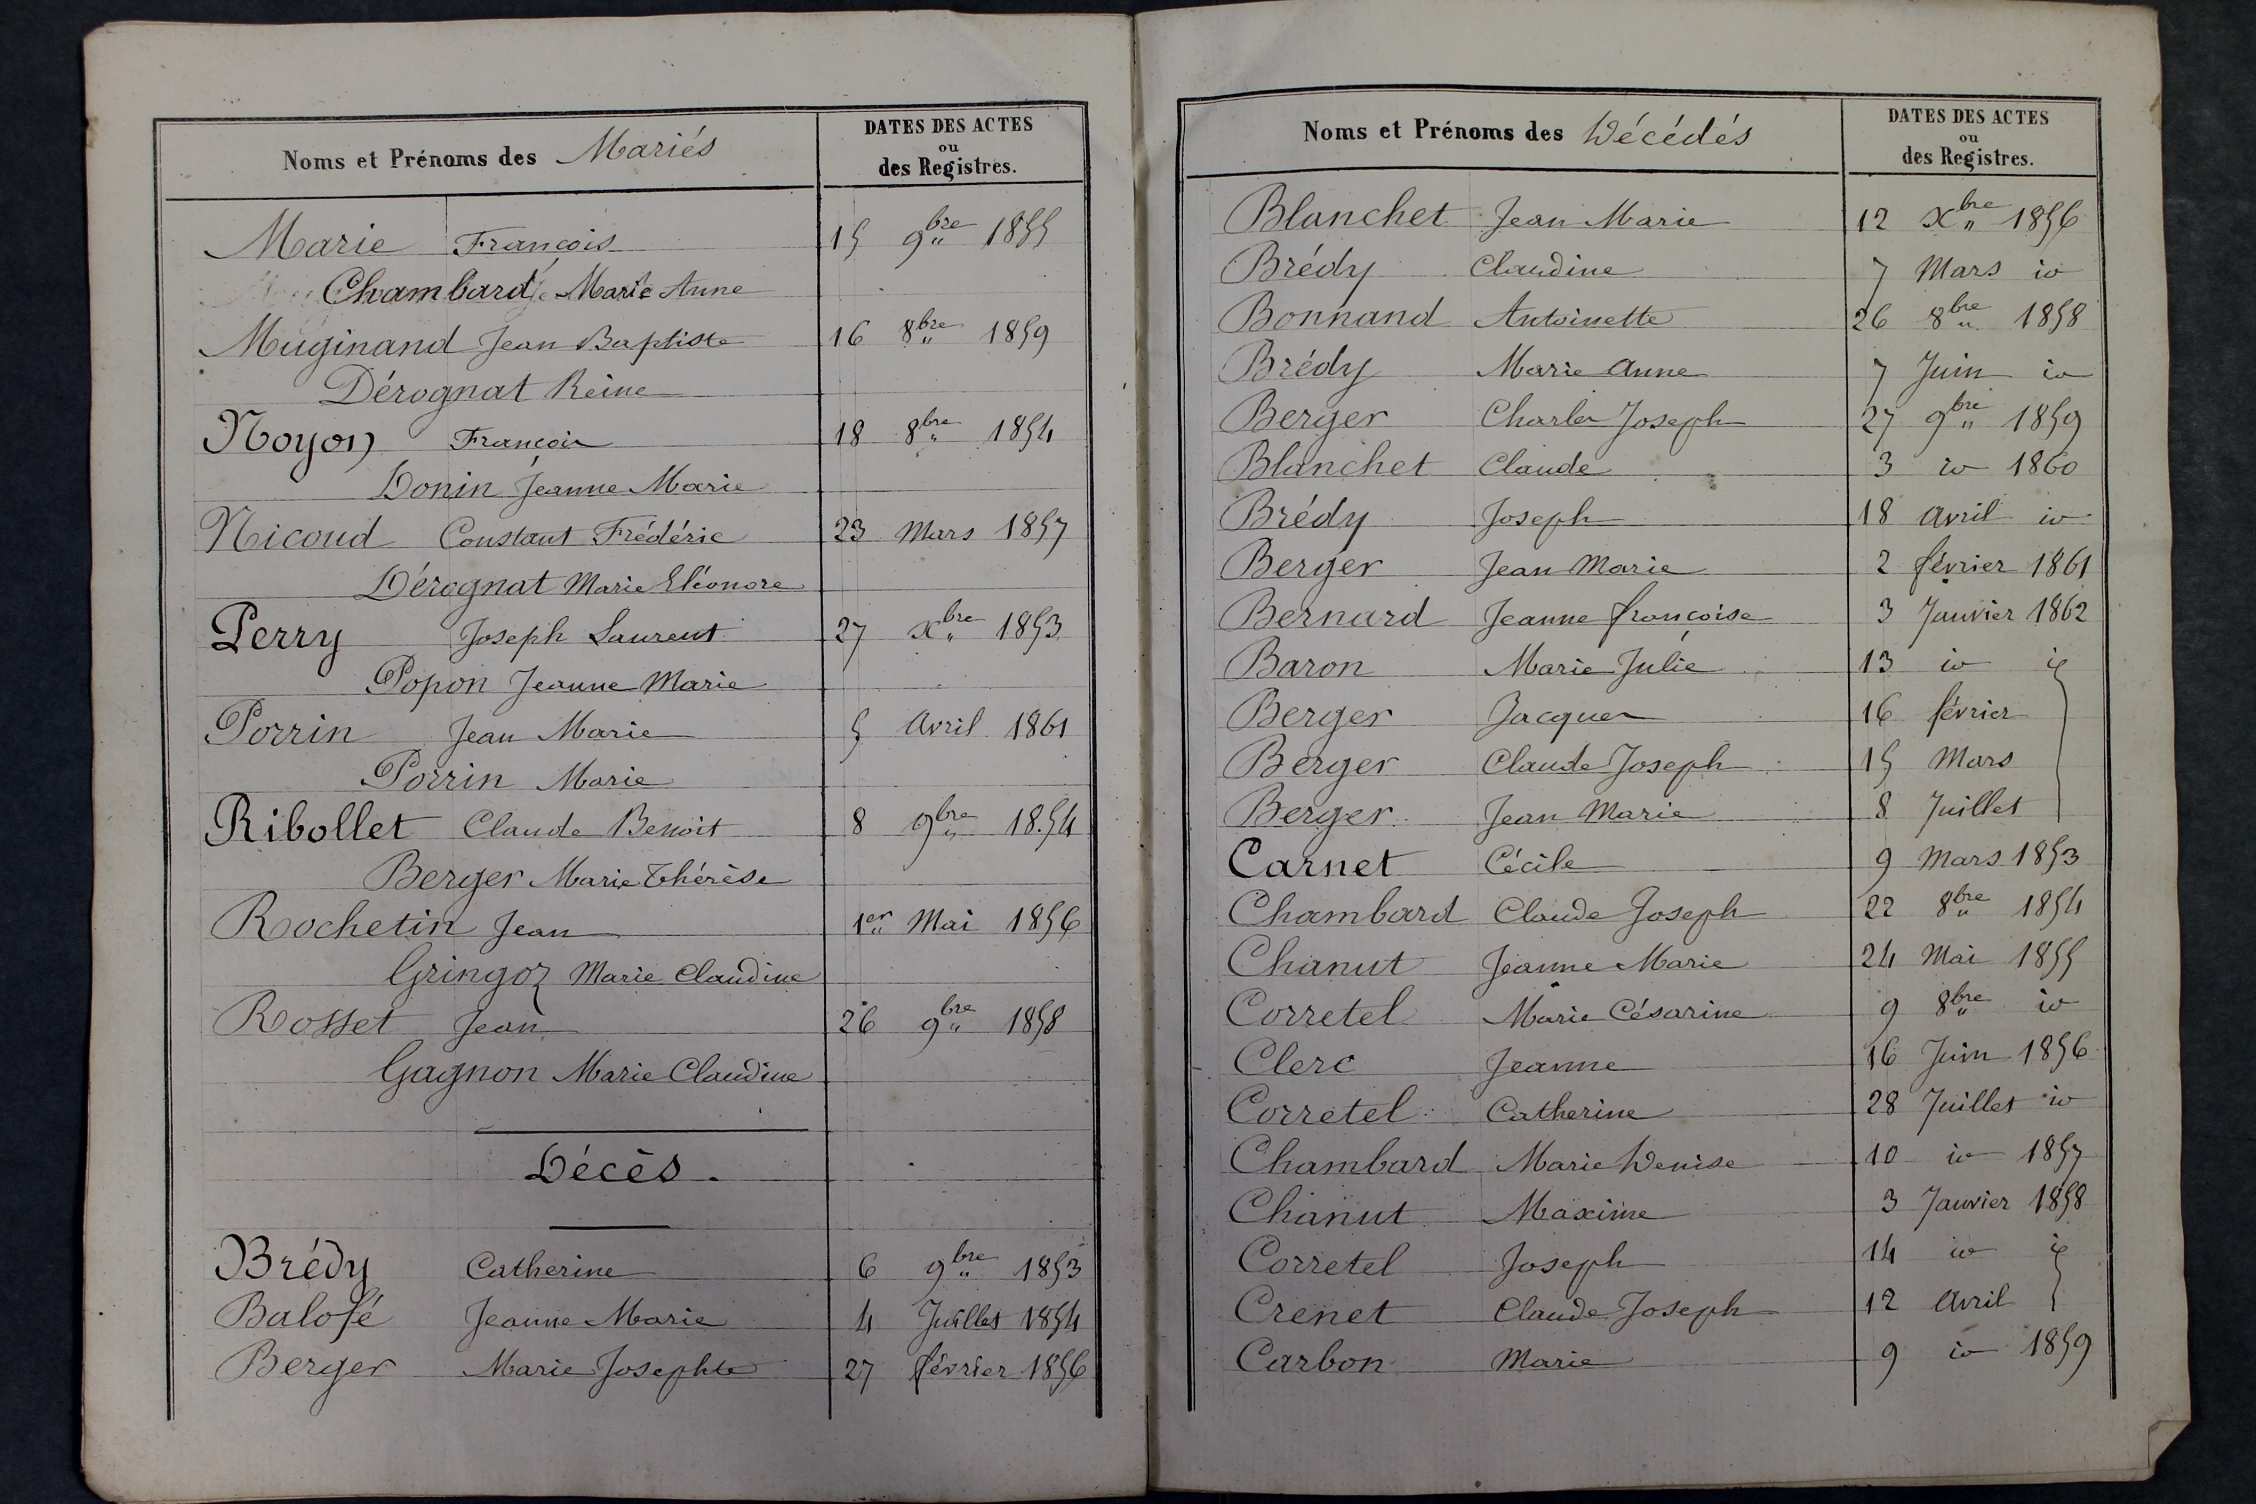 Noms et Prénoms des Mariés
DATES DES ACTES
ou
des Registres.
Marie François 15 9bre 1855
Chambard Marie Anne
Muginand Jean Baptiste 16 8bre 1859
Dérognat Reine
Noyon François 18 8bre 1854
Donin Jeanne Marie
Nicoud Constant Frédéric 23 Mars 1857
Dérognat Marie Eléonore
Perry Joseph Laurent 27 xbre 1853
Popon Jeanne Marie
Porrin Jean Marie 5 Avril 1861
Porrin Marie
Ribollet Claude Benoit 8 9bre 1854
Berger Marie Thérèse
Rochetin Jean 1er Mai 1856
Gringoz Marie Claudine
Rosset Jean 26 9bre 1858
Gagnon Marie Claudine
Décès.
Brédy Catherine 6 9bre 1853
Balosé Jeanne Marie 4 Juillet 1854
Berger Marie Josephte 27 février 1856
Noms et Prénoms des Décédés
DATES DES ACTES
ou
des Registres.
Blanchet Jean Marie 12 xbre 1856
Brédy Claudine 7 Mars id
Bonnand Antoinette 26 8bre 1858
Brédy Marie Anne 7 Juin id
Berger Charles Joseph 27 9bre 1859
Blanchet Claude 3 id 1860
Brédy Joseph 18 avril id
Berger Jean Marie 2 février 1861
Bernard Jeanne françoise 3 Janvier 1862
Baron Marie Julie 13 id id
Berger Jacques 16 février
Berger Claude Joseph 15 Mars
Berger Jean Marie 8 Juillet
Carnet Cécile 9 Mars 1853
Chambard Claude Joseph 22 8bre 1854
Chanut Jeanne Marie 24 Mai 1855
Corretel Marie Césarine 9 8bre id
Clerc Jeanne 16 Juin 1856
Corretel Catherine 28 Juillet id
Chambard Marie Denise 10 id 1857
Chanut Maxime 3 Janvier 1858
Corretel Joseph 14 id id
Crenet Claude Joseph 12 Avril
Carbon Marie 9 id 1859